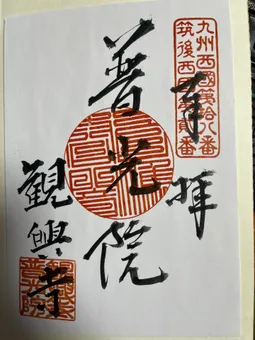 九州西國第拾八番
筑後西
番
奉拝
普光院
観興寺